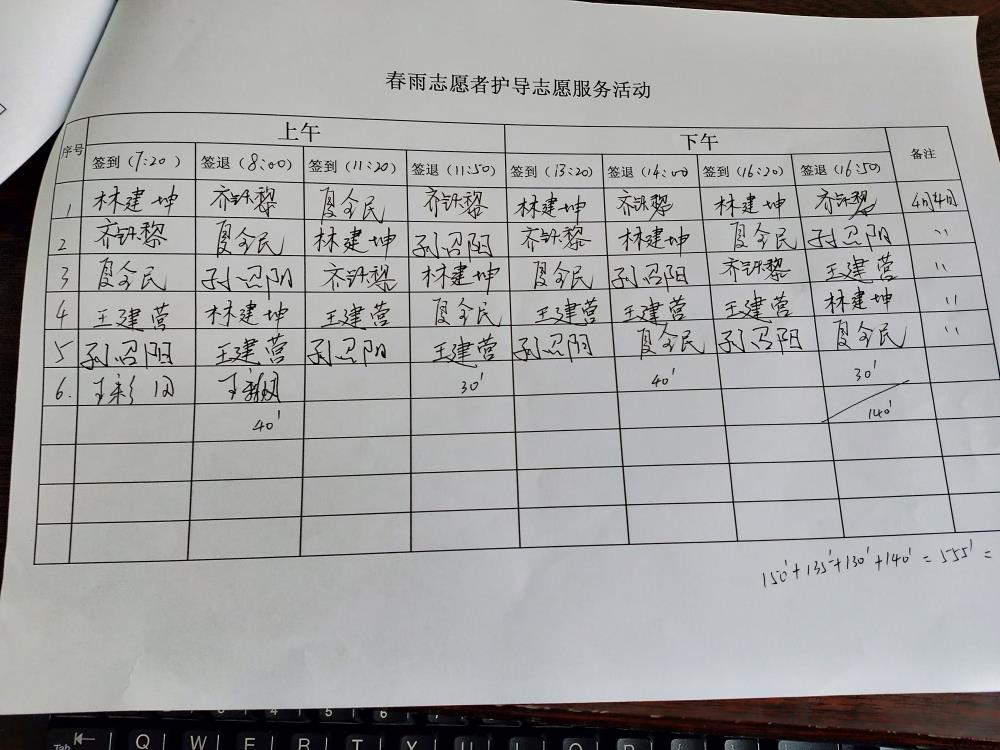 春雨志愿者护导志愿服务活动
序号 上午 下午 备注
签到（7:20） 签退（8:00） 签到（11:20） 签退（11:50） 签到（13:20） 签退（14:00） 签到（16:20） 签退（16:50）
1 林建坤 齐铁黎 夏全民 齐铁黎 林建坤 齐铁黎 林建坤 齐铁黎 4月4日
2 齐铁黎 夏全民 林建坤 孙召阳 齐铁黎 林建坤 夏全民 孙召阳 〃
3 夏全民 孙召阳 齐铁黎 林建坤 夏全民 孙召阳 齐铁黎 王建营 〃
4 王建营 林建坤 王建营 夏全民 王建营 王建营 王建营 林建坤 〃
5 孙召阳 王建营 孙召阳 王建营 孙召阳 夏全民 孙召阳 夏全民 〃
6. 30' 40' 30'
40' 140'
150'+135'+130'+140'=555'=
Tab Q W E R T Y U I O P